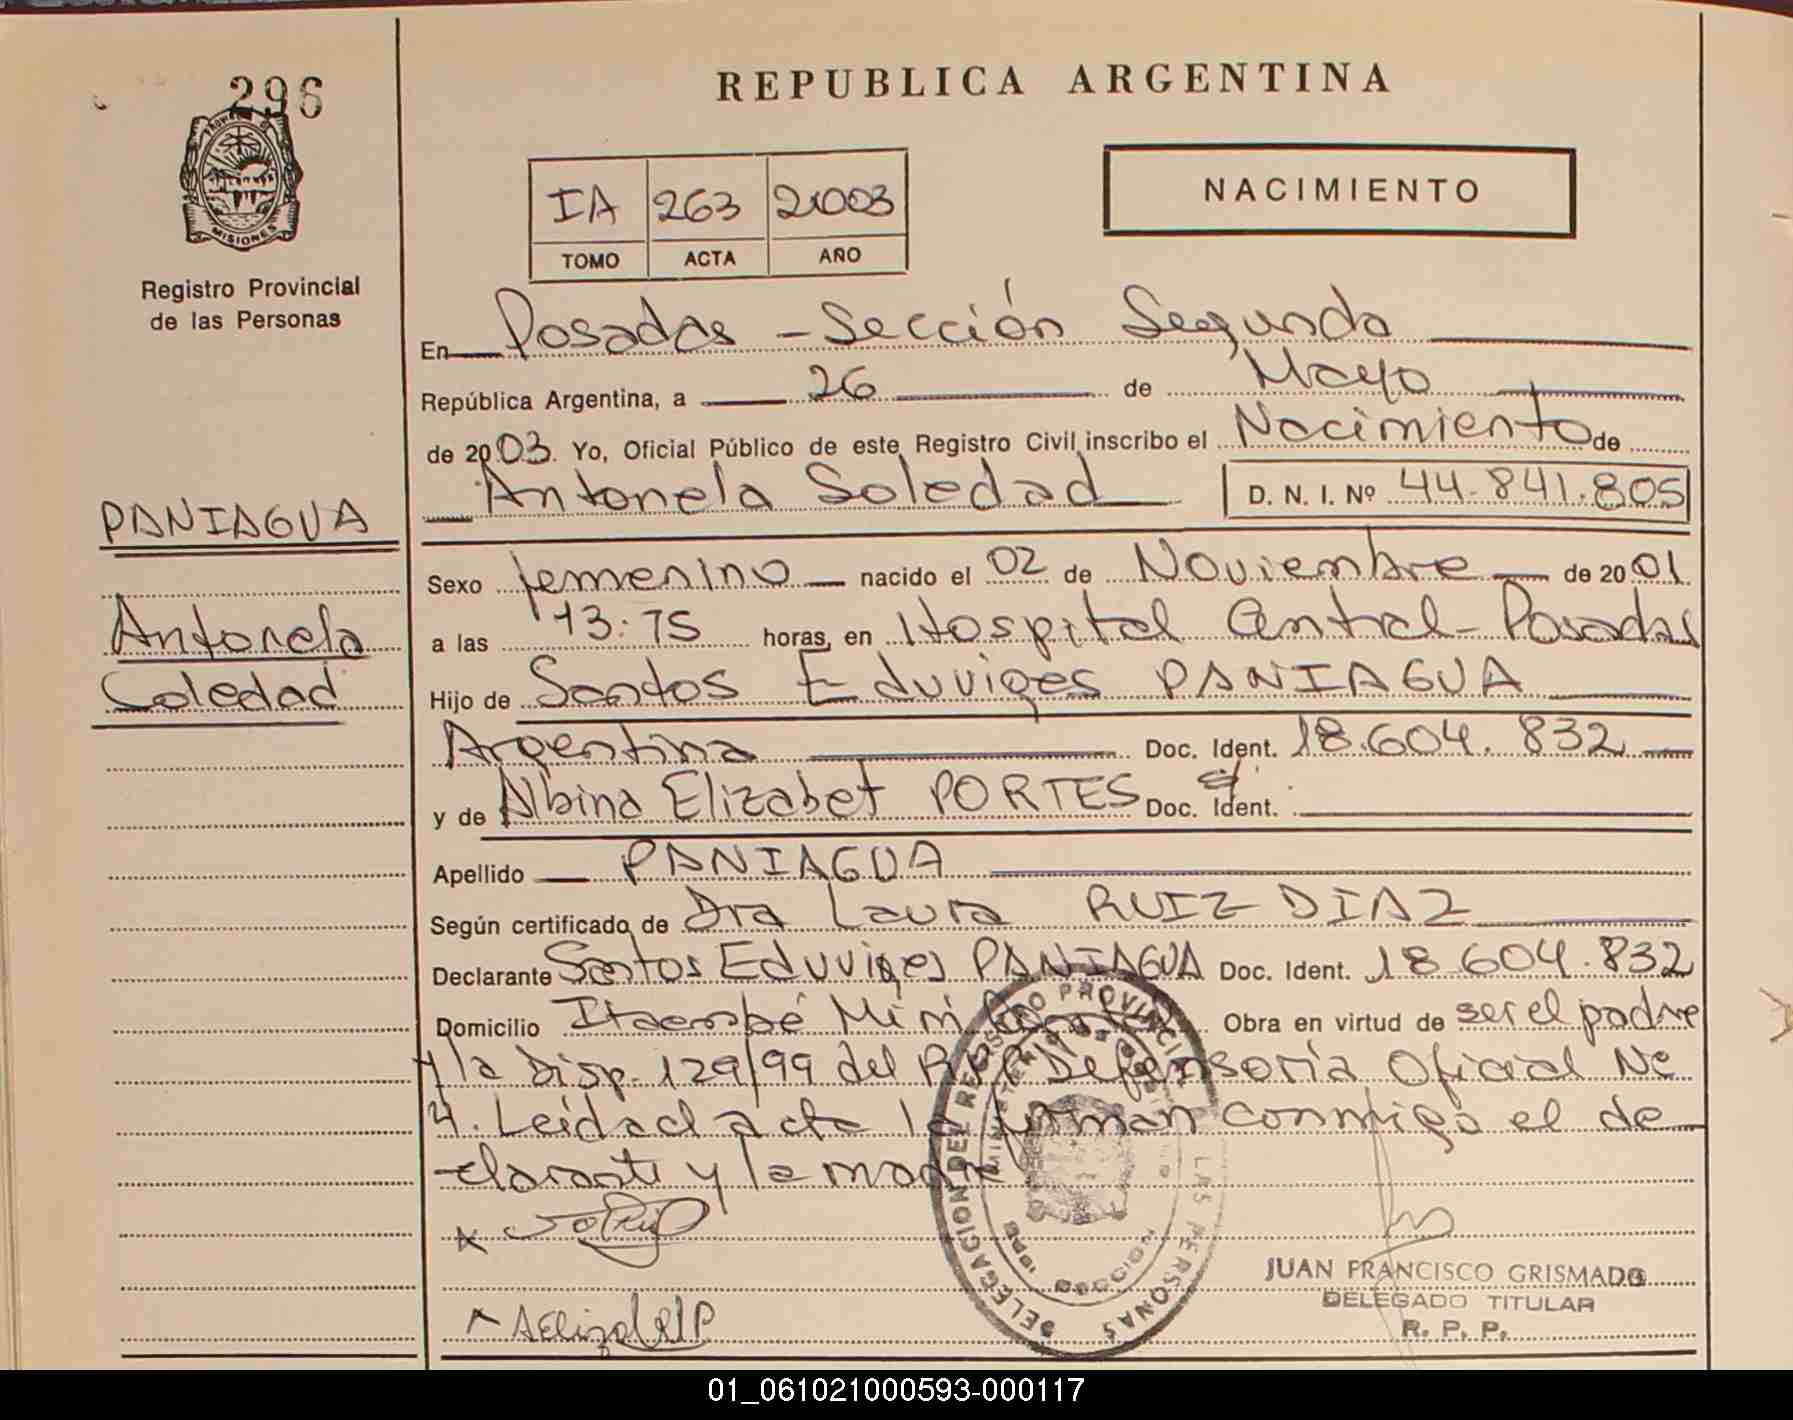 296
PROVINCIA DE
MISIONES
Registro Provincial
de las Personas
PANIAGUA
Antonela
Soledad
REPUBLICA ARGENTINA
IA 263 2003
TOMO ACTA AÑO
NACIMIENTO
En Posadas - Sección Segunda
República Argentina, a 26 de Mayo
de 2003. Yo, Oficial Público de este Registro Civil inscribo el Nacimiento de
Antonela Soledad D. N. I. Nº 44.841.805
Sexo femenino nacido el 02 de Noviembre de 2001
a las 13:15 horas, en Hospital Central - Posadas
Hijo de Santos Eduviges PANIAGUA
Argentina Doc. Ident. 18.604.832
y de Albina Elizabet PORTES Doc. Ident.
Apellido PANIAGUA
Según certificado de Dra Laura RUIZ DIAZ
Declarante Santos Eduviges PANIAGUA Doc. Ident. 18.604.832
Domicilio Itaembé Miní Obra en virtud de ser el padre
y la Disp. 129/99 del RPP Defensoría Oficial Nº
4. Leída el acta la firman conmigo el de
clarante y la madre
DELEGACION DEL REGISTRO PROVINCIAL DE LAS PERSONAS
JUAN FRANCISCO GRISMADO
DELEGADO TITULAR
R. P. P.
01_061021000593-000117